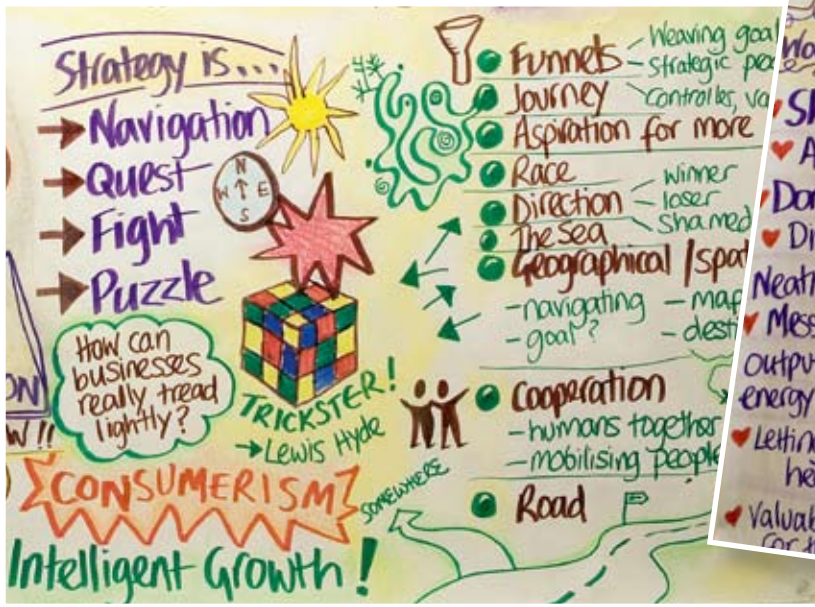 Strategy is...
Navigation
Quest
Fight
Puzzle
N
W E
S
How can
businesses
really tread
lightly?
TRICKSTER!
Lewis Hyde
CONSUMERISM
Intelligent Growth!
Funnels
- Weaving goal
- Strategic
Journey
Controller,
Aspiration for more
Race
Direction
- winner
- loser
shamed
The Sea
Geographical /
- navigating
- goal?
Cooperation
- humans together
- mobilising people
Road
SOMEWHERE
ON
W!!
Neat
Mess
outpu
energy
Lettin
he
Valuab